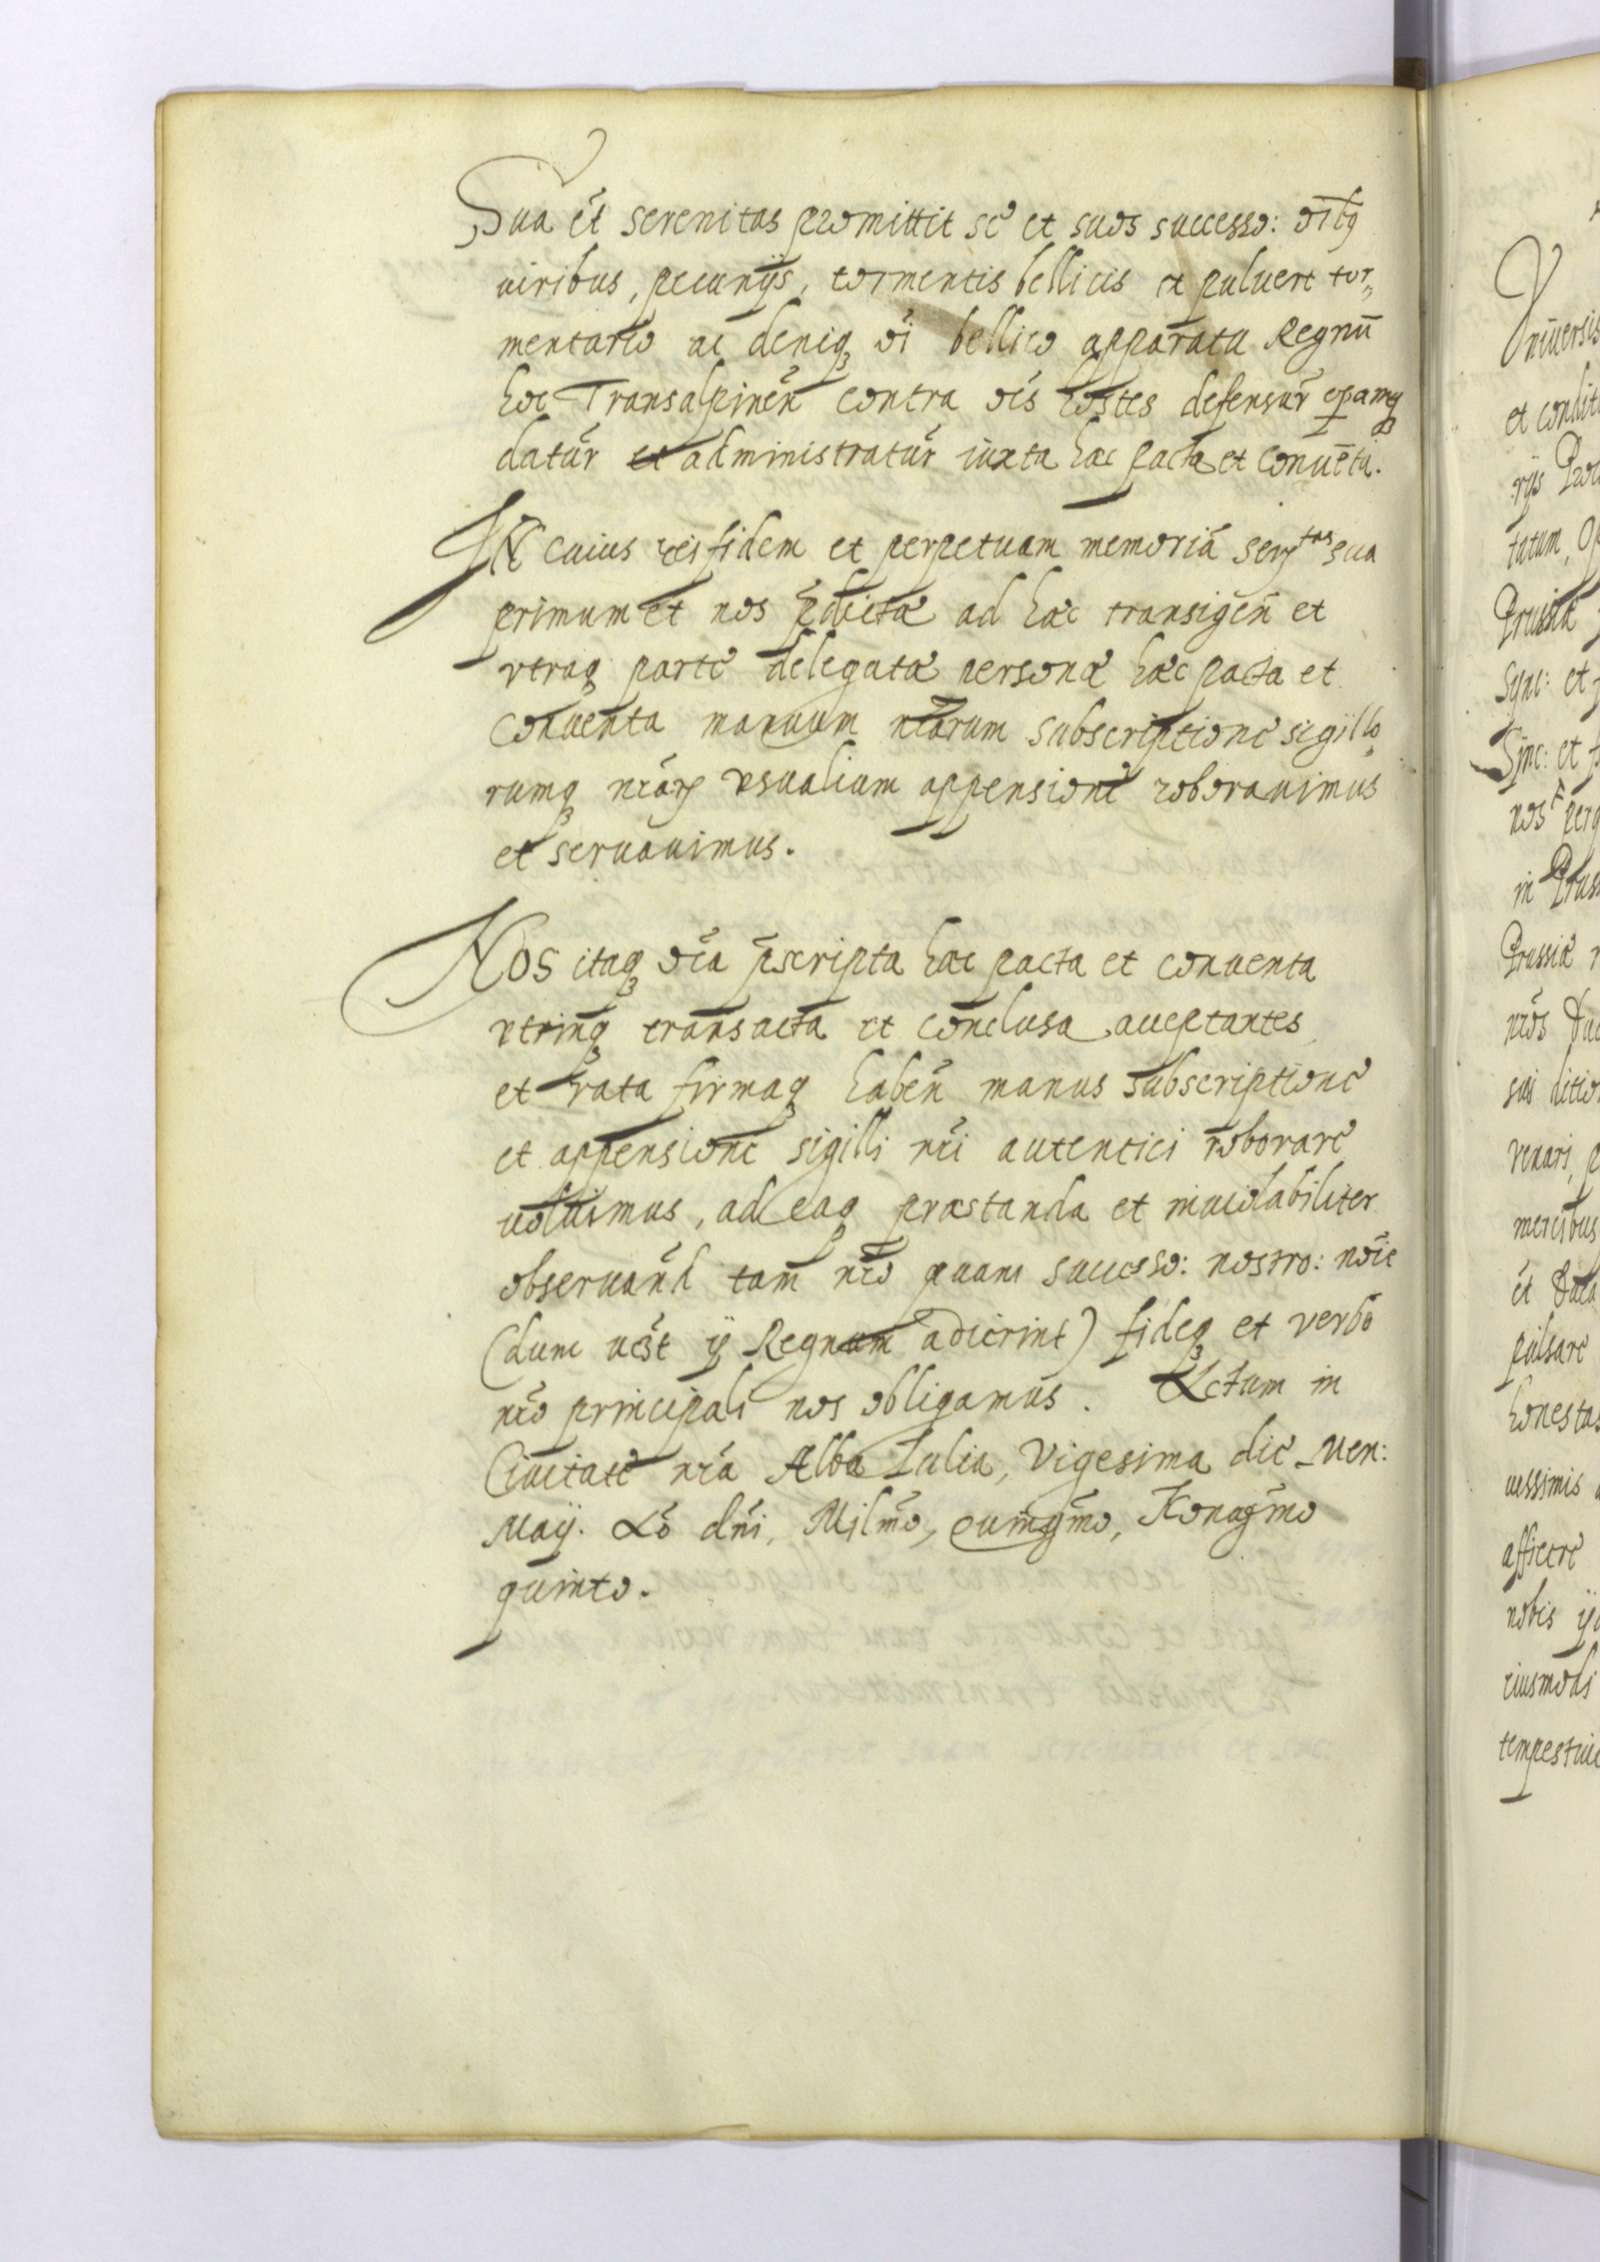 Sua et̄ serenitas promittit se et suos successo: oībꝫ
uiribus, pecunijs, tormentis bellicis et puluere tor„
mentario ac deniqꝫ oī bellico apparatu Regnū
hoc Transalpinēn contra oēs hostes defensūr
datūr et administratūr iuxta hæc pacta et conuēta.
IN cuius rei fidem et perpetuam memoriā Serꝫtas sua
primum et nos p̄dictæ ad hæc transigēn et
vtraqꝫ parte delegatæ personæ hæc pacta et
conuenta manuum nr̄arum subscriptione sigillo„
rumqꝫ nr̄aꝝ vsualium appensione roborauimus
et seruauimus.
NOS itaqꝫ oīa p̄scripta hæc pacta et conuenta
vtrinqꝫ transacta et conclusa acceptantes
et rata firmaqꝫ habēn manus subscriptione
et appensione sigilli nr̄i autentici roborare
uoluimus, ad eaqꝫ præstanda et inuiolabiliter
obseruānd tam nr̄o quam successo: nostro: noīe
(dum ij Regnum adierint) fideqꝫ et verbo
nr̄o principali nos obligamus. Actum in
Ciuitate nr̄a Alba Iulia, Vigesima die Men:
Maij. Aō dn̄i, Milmō, quingmō, Nonagmō
quinto.
Vniuersis
et
rijs
tatum,
Prussiæ
Sync: et
Sync: et
nos
in
Prussiæ
nr̄os
sui
venari,
mercibus
et
pulsare
honestas
uissimis
afficere
nobis
eiusmodi